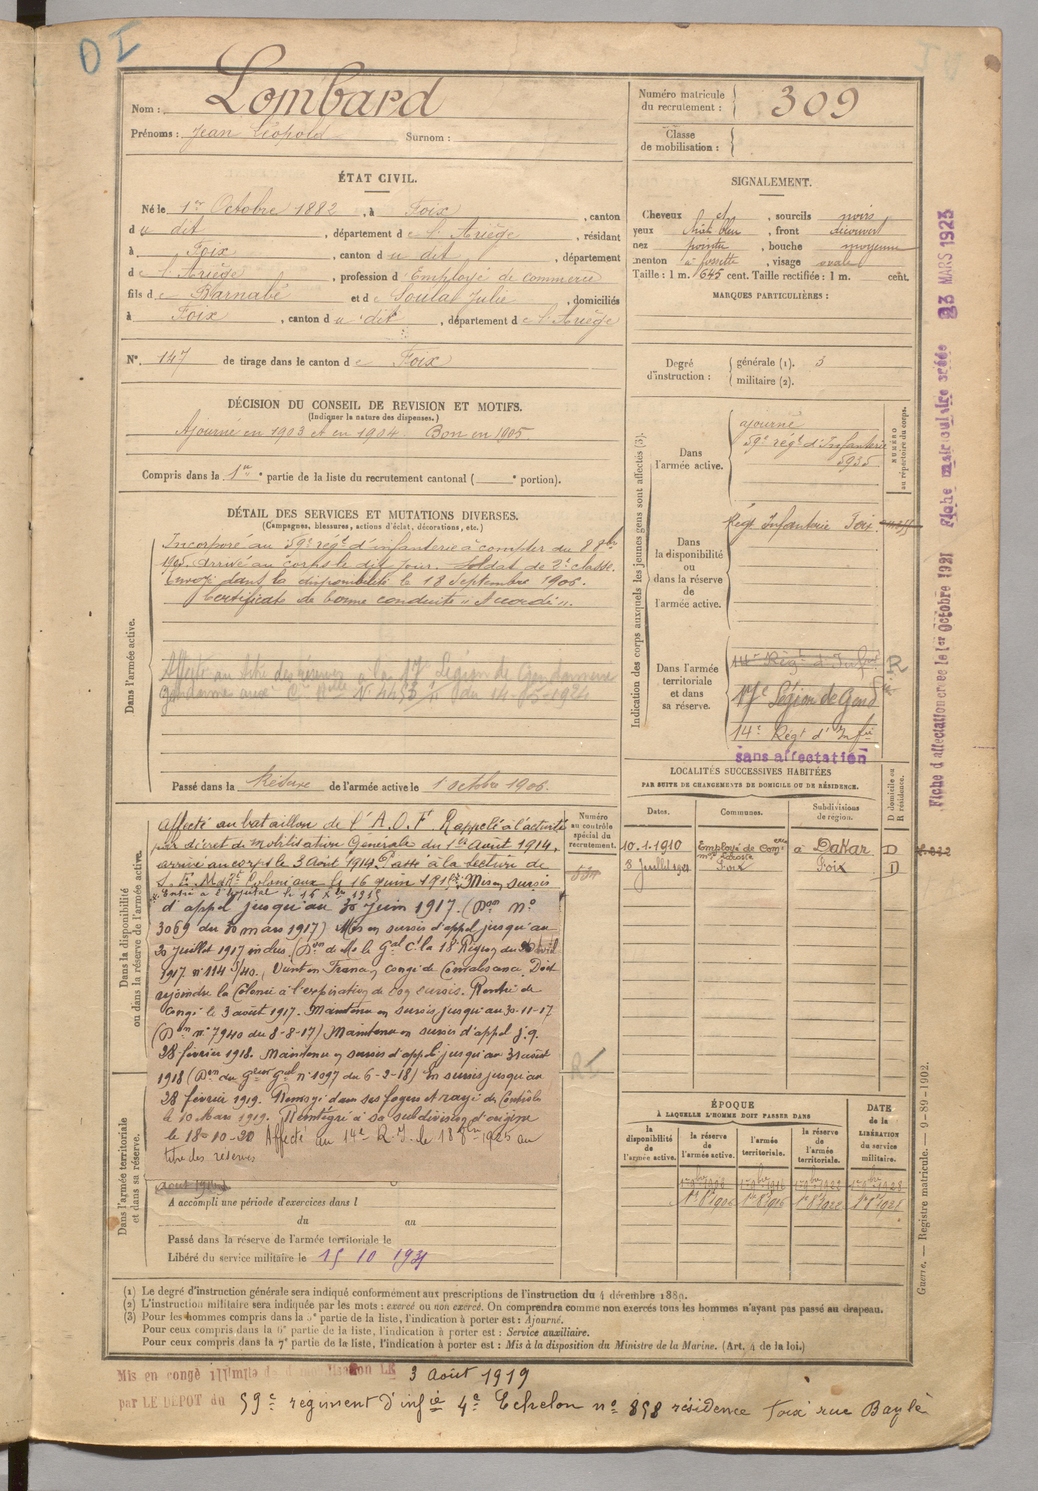 D I
Nom : Lombard
Prénoms : Jean Léopold Surnom :
Numéro matricule du recrutement : 309
Classe de mobilisation :
ÉTAT CIVIL.
Né le 1er Octobre 1882, à Foix, canton
du dit, département de l'Ariège, résidant
à Foix, canton du dit, département
de l'Ariège, profession d'Employé de commerce
fils de Barnabé et de Soula Julie, domiciliés
à Foix, canton du dit, département de l'Ariège
N° 147 de tirage dans le canton de Foix
DÉCISION DU CONSEIL DE REVISION ET MOTIFS.
(Indiquer la nature des dispenses.)
Ajourné en 1903 et en 1904. Bon en 1905
Compris dans la 1re partie de la liste du recrutement cantonal ( ° portion).
SIGNALEMENT.
Cheveux, sourcils noirs
yeux bleu, front découvert
nez pointu, bouche moyenne
menton à fossette, visage ovale
Taille : 1 m. 645 cent. Taille rectifiée : 1 m. cent.
MARQUES PARTICULIÈRES :
Degré d'instruction : générale (1). 3
militaire (2).
DÉTAIL DES SERVICES ET MUTATIONS DIVERSES.
(Campagnes, blessures, actions d'éclat, décorations, etc.)
Dans l'armée active.
Incorporé au 59e régt d'infanterie à compter du 8 8bre
1905. Arrivé au corps le dit jour. Soldat de 2e classe.
Envoyé dans la disponibilité le 18 Septembre 1906.
Certificat de bonne conduite "Accordé".
Affecté au titre des réserves à la 17e Légion de Gendarmerie
du 14-05-1924
Passé dans la Réserve de l'armée active le 1 octobre 1906.
Indication des corps auxquels les jeunes gens sont affectés (3).
NUMÉRO au répertoire du corps.
Dans l'armée active.
ajourné
59e régt d'Infanterie
5935
Dans la disponibilité ou dans la réserve de l'armée active.
Régt Infanterie Foix
Dans l'armée territoriale et dans sa réserve.
17e Légion de Gend
14e Régt d'Infie
sans affectation
R
LOCALITÉS SUCCESSIVES HABITÉES
PAR SUITE DE CHANGEMENTS DE DOMICILE OU DE RÉSIDENCE.
Dates. Communes. Subdivisions de région. D domicile ou R résidence.
10.1.1910 Employé de Comce à Dakar D
8 Juillet Foix Foix D
Dans la disponibilité ou dans la réserve de l'armée active.
Numéro au contrôle spécial du recrutement.
Affecté au bataillon de l'A.O.F. Rappelé à l'activité
par décret de Mobilisation Générale du 1er Août 1914,
arrivé au corps le 3 Août 1914. Passé à la Section de
Coloniaux le 16 juin 1915. Mis en sursis
Entré à l'hôpital le
d'appel jusqu'au 30 juin 1917. (Don N°
3069 du 30 mars 1917) Mis en sursis d'appel jusqu'au
30 juillet 1917 inclus. Don de Mr le Gal Ct la 18 Région du
1917 n° 114 Vient en France, congé de Convalescence. Doit
rejoindre la Colonie à l'expiration de son sursis. Rentré de
Congé le 3 août 1917. Maintenu en sursis jusqu'au 30-11-17
(Don n° 7940 du 8-8-17) Maintenu en sursis d'appel j.q.
28 février 1918. Maintenu en sursis d'appel jusqu'au 31 août
1918 (Don du n° 1097 du 6-2-18) En sursis jusqu'au
28 février 1919. Renvoyé dans ses foyers et rayé des Contrôles
le 10 Mars 1919. Réintégré à sa subdivision d'origine
le Affecté au 14e R.I. le au
titre des réserves
R I
Dans l'armée territoriale et dans sa réserve.
A accompli une période d'exercices dans l
du au
Passé dans la réserve de l'armée territoriale le
Libéré du service militaire le 15 10 1931
ÉPOQUE
À LAQUELLE L'HOMME DOIT PASSER DANS
DATE de la LIBÉRATION du service militaire.
la disponibilité de l'armée active. la réserve de l'armée active. l'armée territoriale. la réserve de l'armée territoriale.
(1) Le degré d'instruction générale sera indiqué conformément aux prescriptions de l'instruction du 4 décembre 1889.
(2) L'instruction militaire sera indiquée par les mots : exercé ou non exercé. On comprendra comme non exercés tous les hommes n'ayant pas passé au drapeau.
(3) Pour les hommes compris dans la 5e partie de la liste, l'indication à porter est : Ajourné.
Pour ceux compris dans la 6e partie de la liste, l'indication à porter est : Service auxiliaire.
Pour ceux compris dans la 7e partie de la liste, l'indication à porter est : Mis à la disposition du Ministre de la Marine. (Art. 4 de la loi.)
Mis en congé illimité de démobilisation LE 3 Août 1919
par LE DEPOT du 59e régiment d'infie 4e Echelon n° 858 résidence Foix rue Bayle
Guerre. — Registre matricule. — 9-89-1902.
Fiche d'affectation créée le 1er Octobre 1921 Fiche matriculaire créée 23 MARS 1923